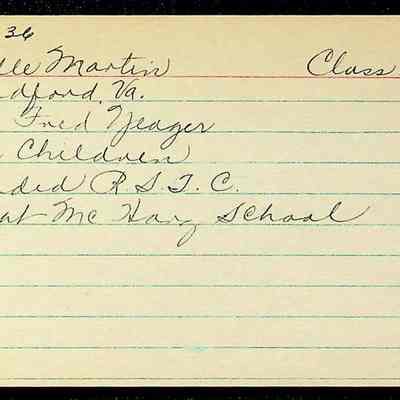 36
lle Martin Class
dford, Va.
Fred Yeager
Children
ded R S. T. C.
at Mc Harg School